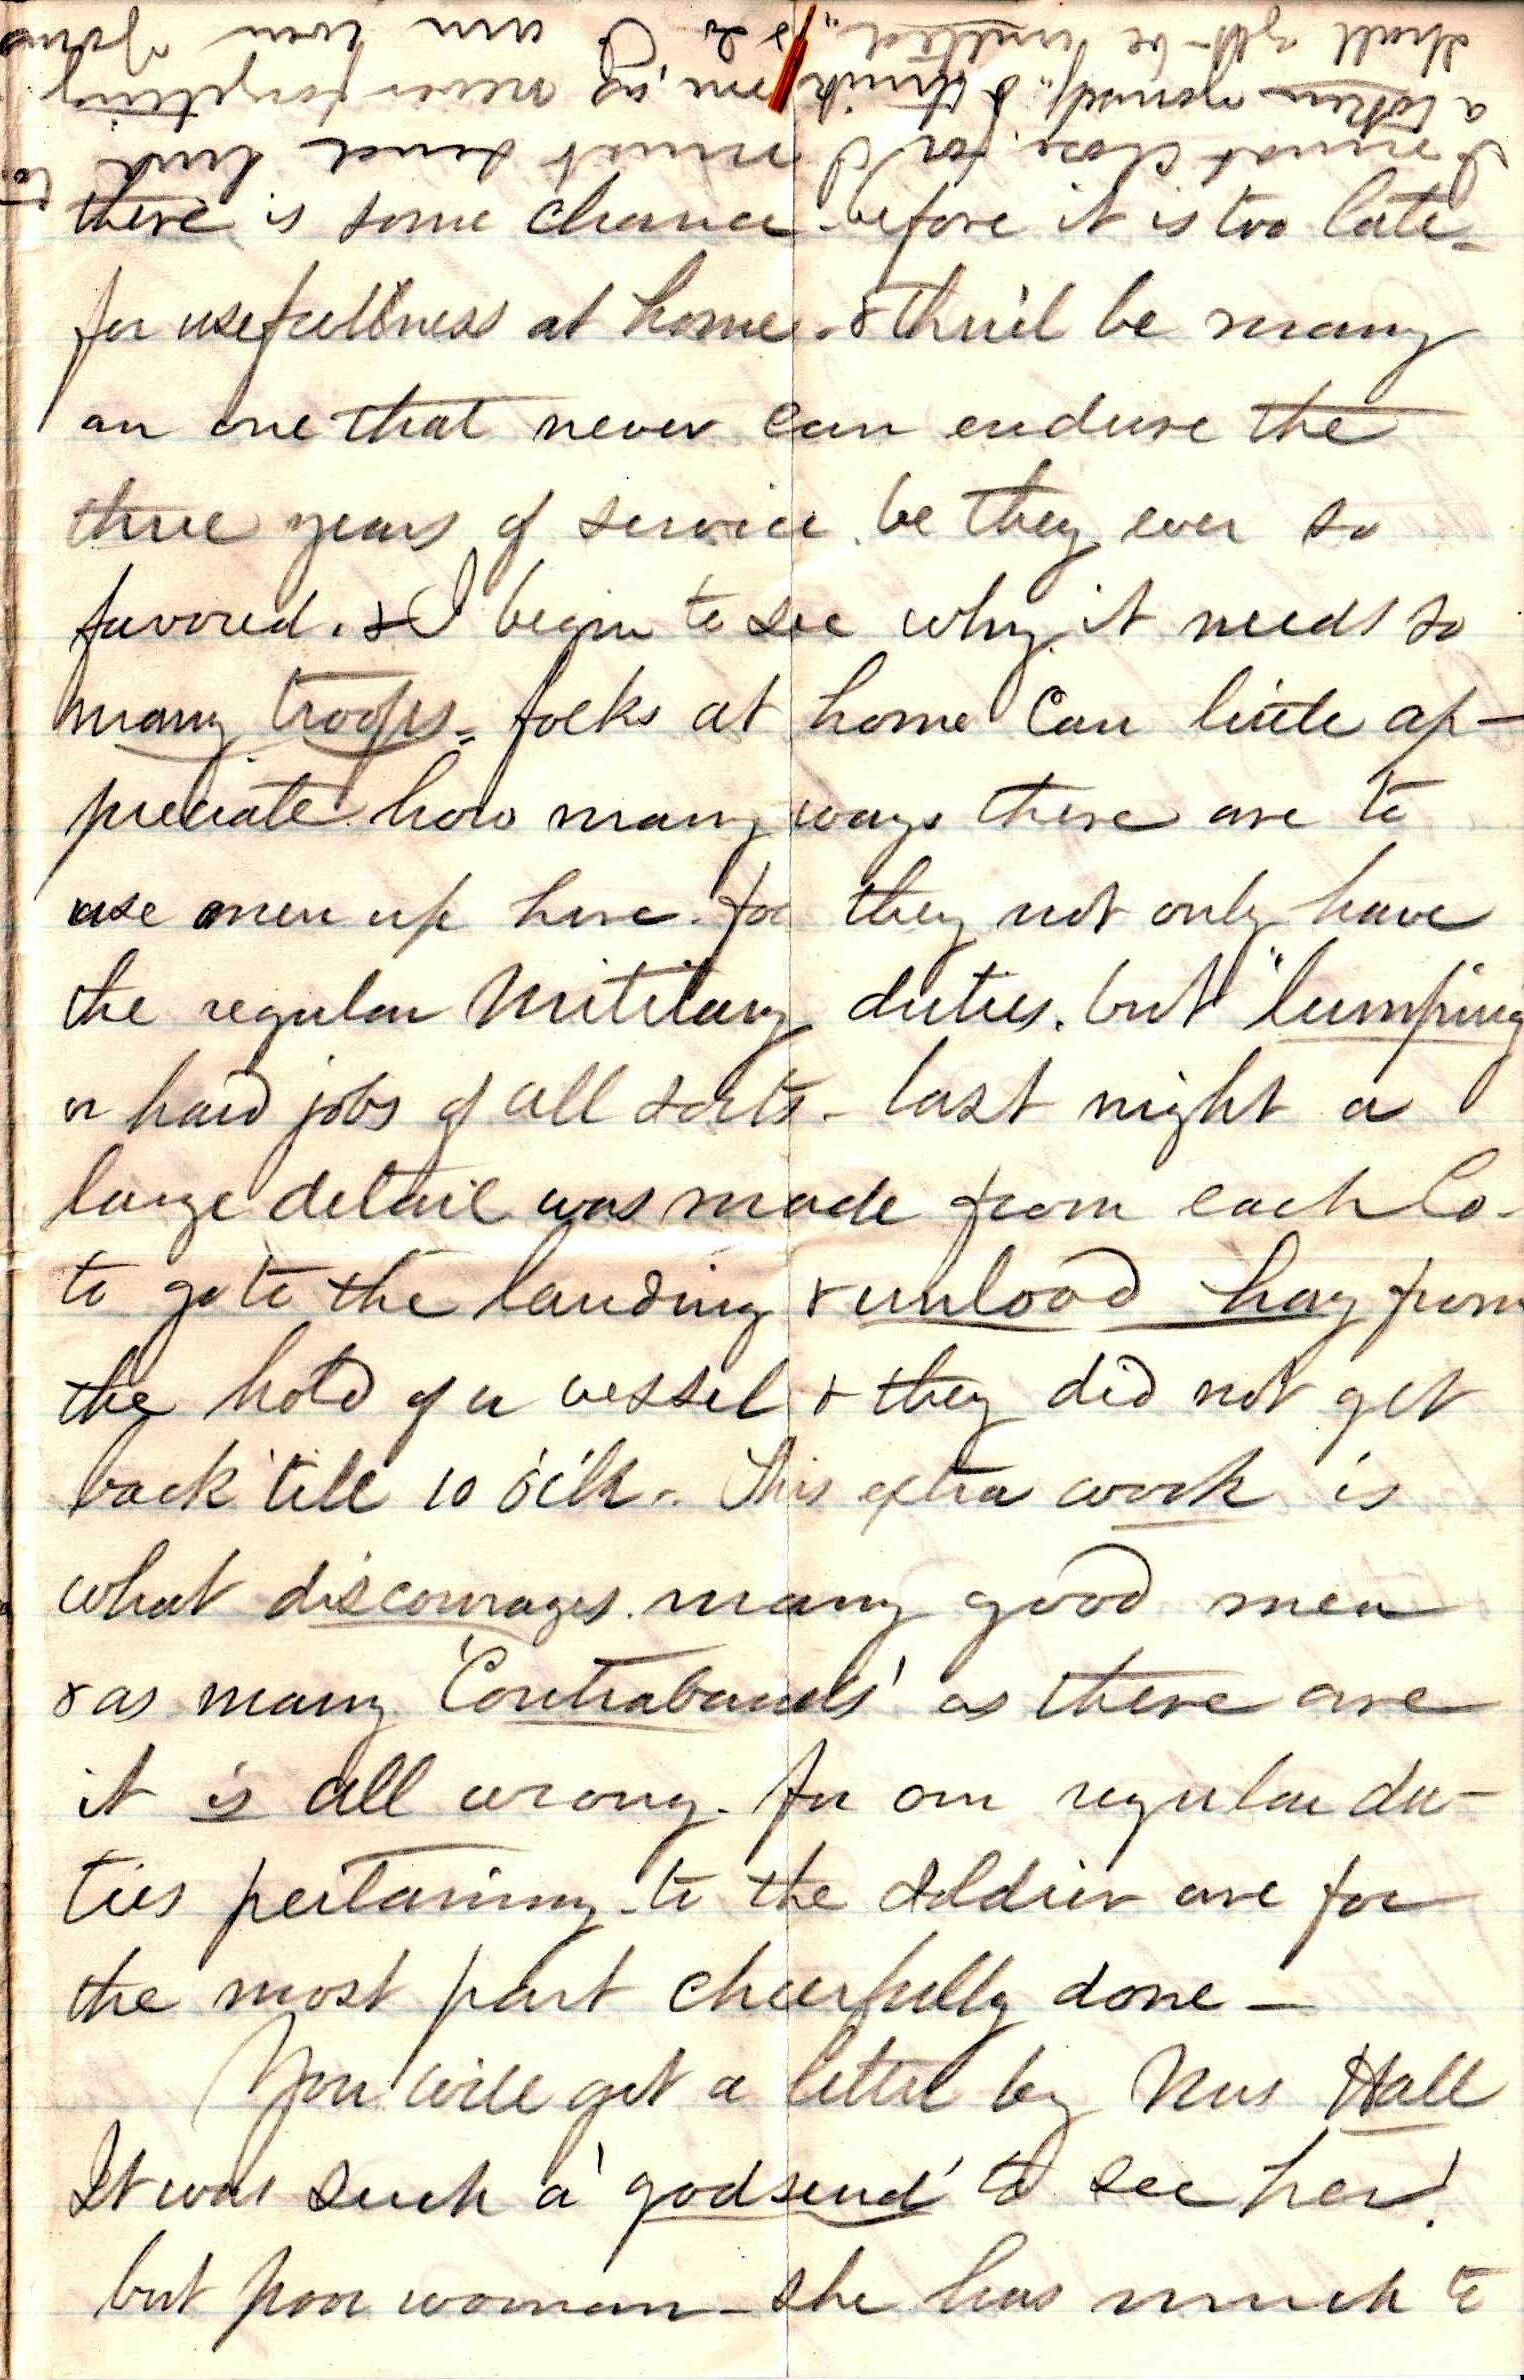 there is some chance before it is too late =
for usefullness at home. & thei'l be many
an one that never can endure the
three years of service. be they ever so
favored. & I begin to see why it needs so
many troops = folks at home can little ap-
preciate how many ways there are to
use men up here. for they not only have
the regular Mititary duties. but "lumping
or hard jobs of all sorts - last night a
large detail was made from each Co-
to go to the landing & unload hay from
the hold of a vessel & they did not get
back till 10 o'clk. This extra work is
what discourages many good men
& as many 'Contrabands' as there are
it is all wrong. for our regular du-
ties pertaining to the soldier are for
the most part cheerfully done -
You will get a letter by Mrs Hall
It was such a 'godsend' to see her!
but poor woman - she has much to
I must close, for I must send and
a token yourself. I think me as never forgetting
shall yet be united" & So I am ever yours